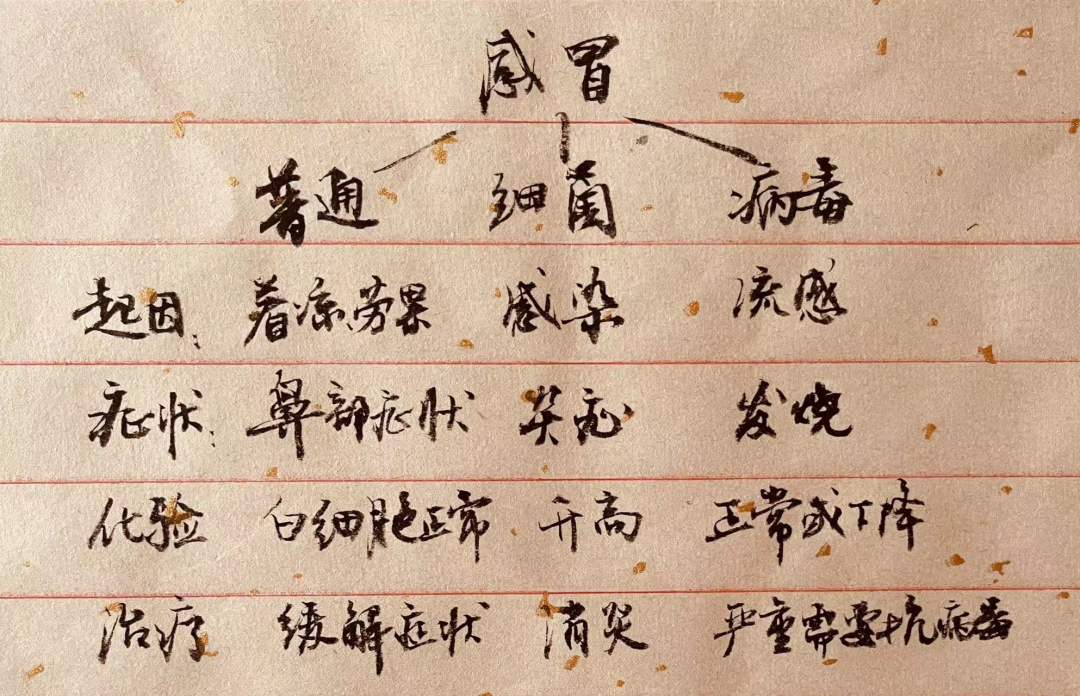 感冒
普通 细菌 病毒
起因: 着凉劳累 感染 流感
症状: 鼻部症状 炎症 发烧
化验 白细胞正常 升高 正常或下降
治疗 缓解症状 消炎 严重需要抗病毒